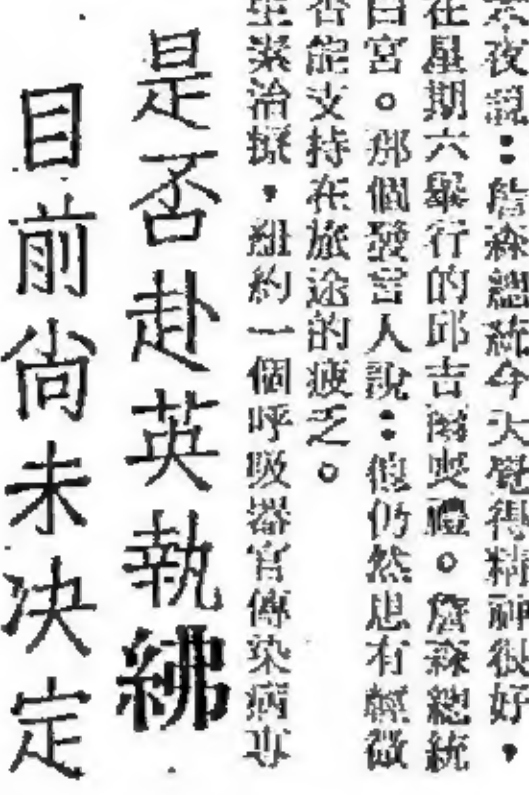 夜說：詹森總統今天覺得精神很好，
在星期六舉行的邱吉爾喪禮。詹森總統
白宮。那個發言人說：他仍然患有輕微
否能支持在旅途的疲乏。
素治療，紐約一個呼吸器官傳染病專
是否赴英執紼
目前尚未決定